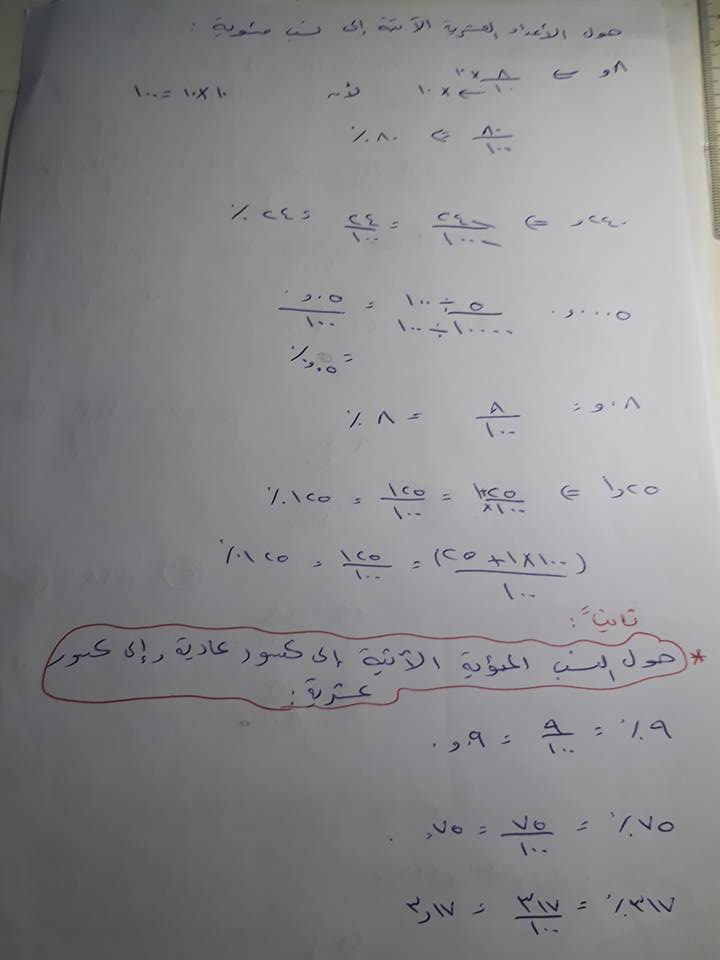 حول الأعداد العشرية الآتية إلى نسب مئوية :
٨و ⇐ ٨×١٠ / ١٠×١٠ لأنه ١٠×١٠=١٠٠
٨٠/١٠٠ ⇐ ٨٠٪
٢٤٠و ⇐ ٢٤٠/١٠٠٠ = ٢٤/١٠٠ = ٢٤٪
٠٠٠٥و٠ ٥÷١٠٠ / ١٠٠٠٠÷١٠٠ = ٠٥و٠/١٠٠
= ٠٥و٪
٠٨و = ٨/١٠٠ = ٨٪
١و٢٥ ⇐ ١+٢٥/×١٠٠ = ١٢٥/١٠٠ = ١٢٥٪
(١٠٠×١+٢٥)/١٠٠ = ١٢٥/١٠٠ = ١٢٥٪
ثانياً :
* حول النسب المئوية الآتية إلى كسور عادية وإلى كسور
عشرية :
٩٪ = ٩/١٠٠ = ٠٩و٠
٧٥٪ = ٧٥/١٠٠ = ٧٥و٠
٣١٧٪ = ٣١٧/١٠٠ = ٣و١٧